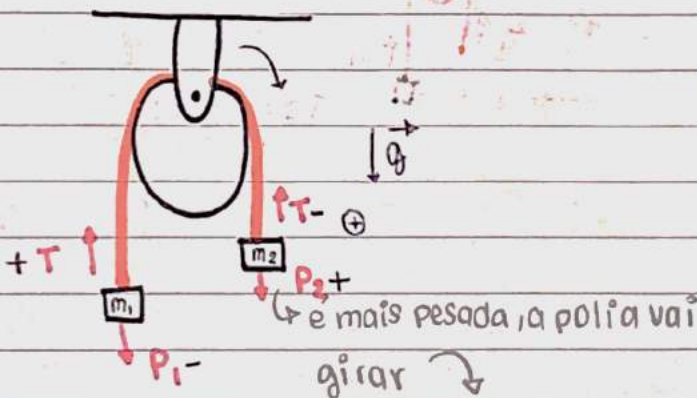 g
T- +
+ T
m2
P2+
m1
↳ é mais pesada, a polia vai
P1-
girar